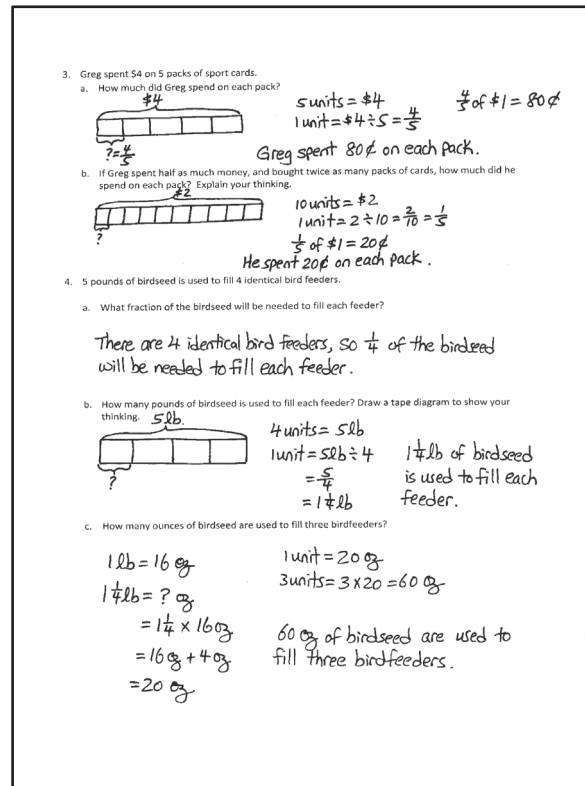 3. Greg spent $4 on 5 packs of sport cards.
a. How much did Greg spend on each pack?
$4
?=4/5
5 units = $4
1 unit = $4 ÷ 5 = 4/5
4/5 of $1 = 80¢
Greg spent 80¢ on each pack.
b. If Greg spent half as much money, and bought twice as many packs of cards, how much did he
spend on each pack? Explain your thinking.
$2
?
10 units = $2
1 unit = 2 ÷ 10 = 2/10 = 1/5
1/5 of $1 = 20¢
He spent 20¢ on each pack.
4. 5 pounds of birdseed is used to fill 4 identical bird feeders.
a. What fraction of the birdseed will be needed to fill each feeder?
There are 4 identical bird feeders, so 1/4 of the birdseed
will be needed to fill each feeder.
b. How many pounds of birdseed is used to fill each feeder? Draw a tape diagram to show your
thinking.
5 lb.
?
4 units = 5 lb
1 unit = 5 lb ÷ 4
= 5/4
= 1 1/4 lb
1 1/4 lb of birdseed
is used to fill each
feeder.
c. How many ounces of birdseed are used to fill three birdfeeders?
1 lb = 16 oz
1 1/4 lb = ? oz
= 1 1/4 x 16 oz
= 16 oz + 4 oz
= 20 oz
1 unit = 20 oz
3 units = 3 x 20 = 60 oz
60 oz of birdseed are used to
fill three birdfeeders.